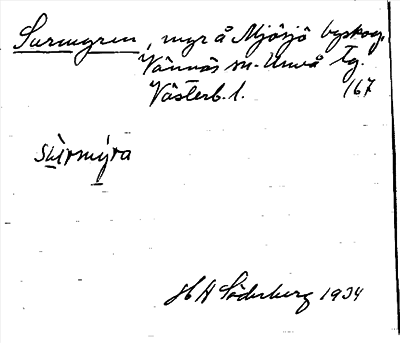 Surmyren, myr å Mjösjö byskog,
Vännäs sn. Umeå tg.
Västerb. l. 167
sùrmýra
H H Söderberg 1934